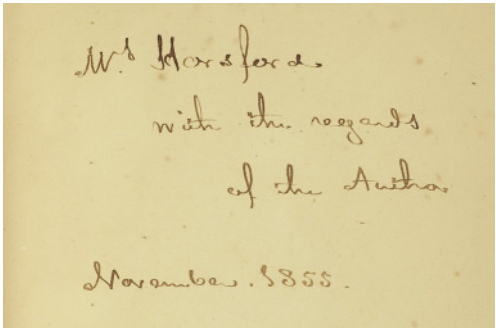 Mrs Horsford
with the regards
of the Author
November. 1855.